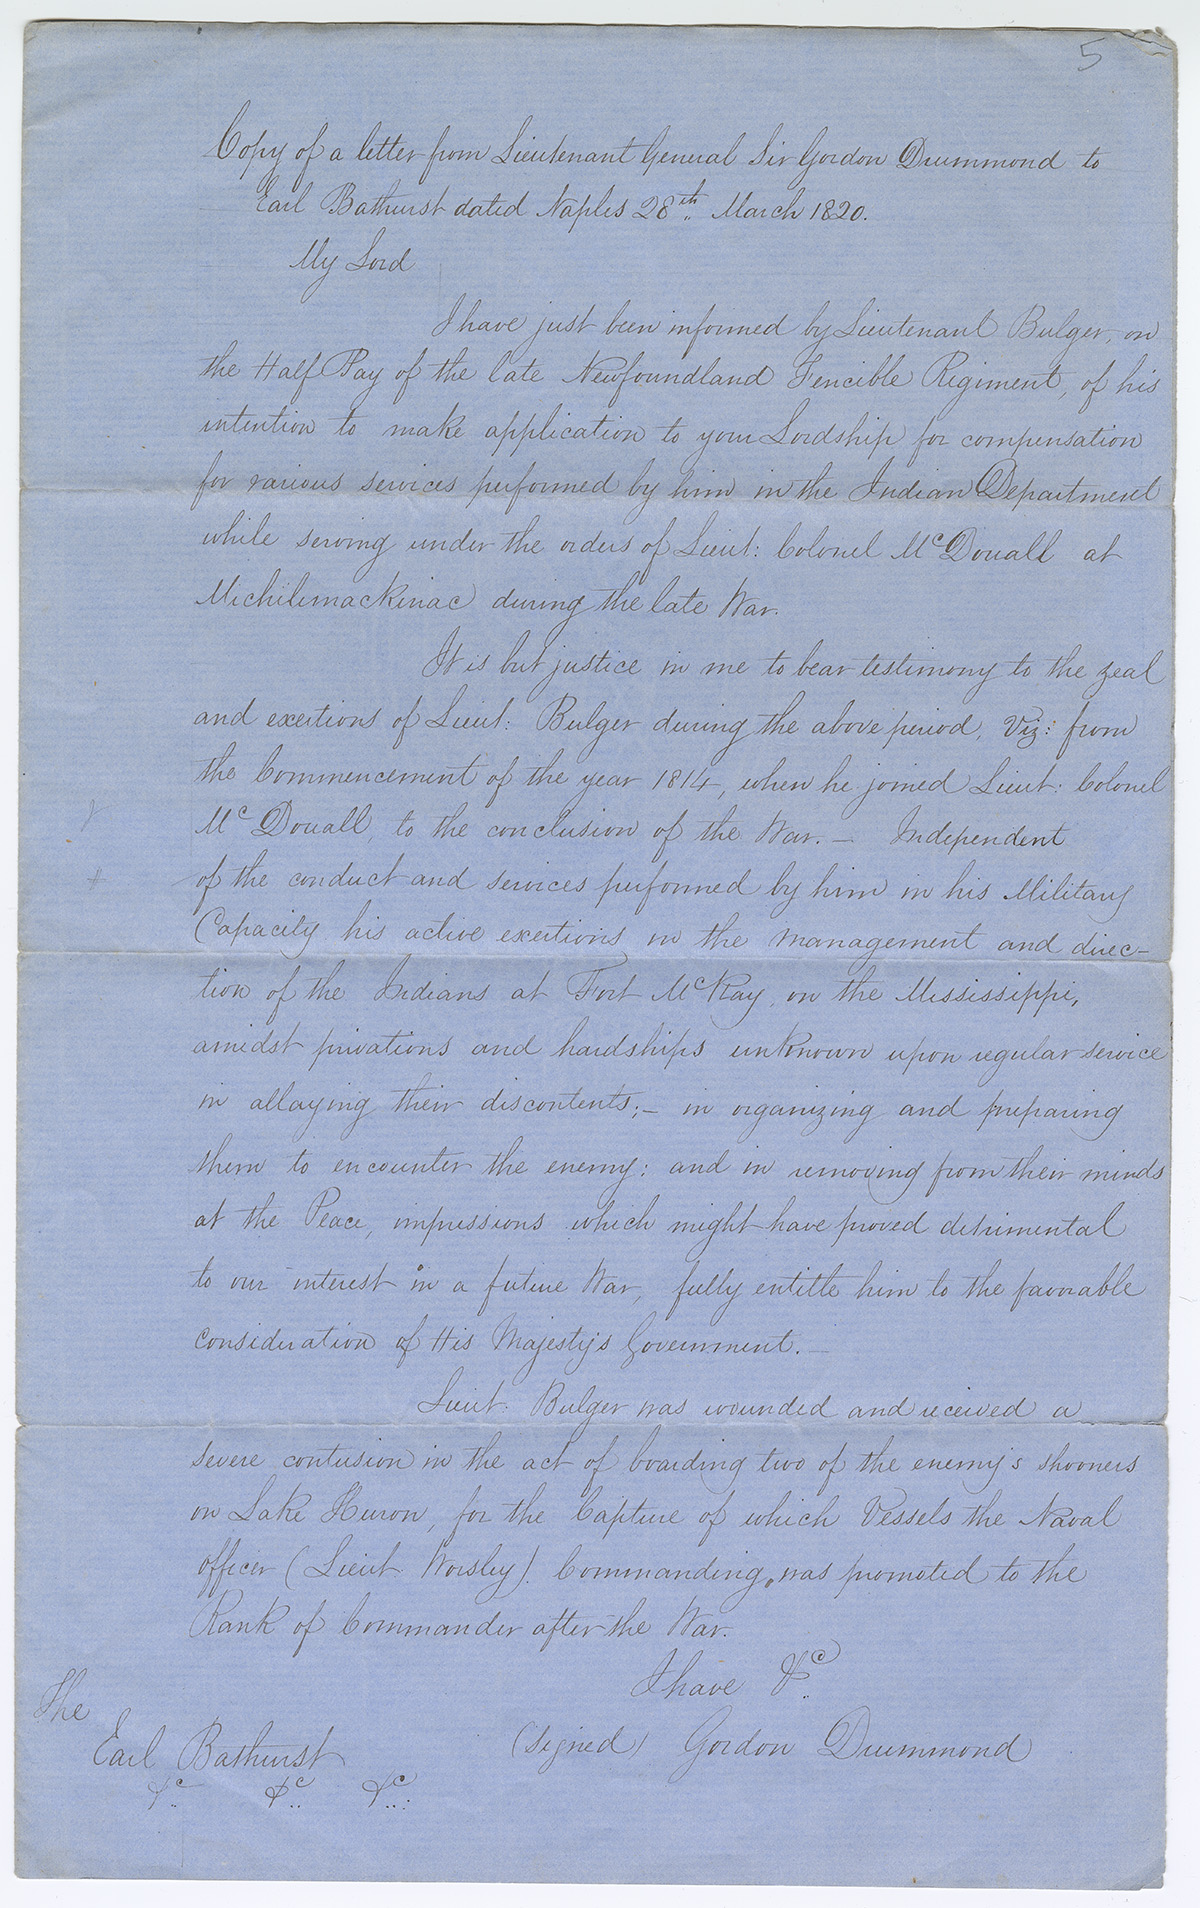 5
Copy of a letter from Lieutenant General Sir Gordon Drummond to
Earl Bathurst dated Naples 28th March 1820.
My Lord
I have just been informed by Lieutenant Bulger, on
the Half Pay of the late Newfoundland Fencible Regiment, of his
intention to make application to your Lordship for compensation
for various services performed by him in the Indian Department
while serving under the orders of Lieut: Colonel McDouall at
Michilimackinac during the late War.
It is but justice in me to bear testimony to the zeal
and exertions of Lieut: Bulger during the above period, Viz: from
the Commencement of the year 1814, when he joined Lieut: Colonel
McDouall, to the conclusion of the War. — Independent
of the conduct and services performed by him in his Military
Capacity his active exertions in the management and direc-
tion of the Indians at Fort McKay, on the Mississippi,
amidst privations and hardships unknown upon regular service
in allaying their discontents; — in organizing and preparing
them to encounter the enemy: and in removing from their minds
at the Peace, impressions which might have proved detrimental
to our interest in a future War, fully entitle him to the favorable
consideration of His Majesty's Government. —
Lieut: Bulger was wounded and received a
severe contusion in the act of boarding two of the enemy's shooners
on Lake Huron, for the Capture of which Vessels the Naval
officer (Lieut. Worsley) Commanding, was promoted to the
Rank of Commander after the War.
I have &c
The
Earl Bathurst (signed) Gordon Drummond
&c &c &c